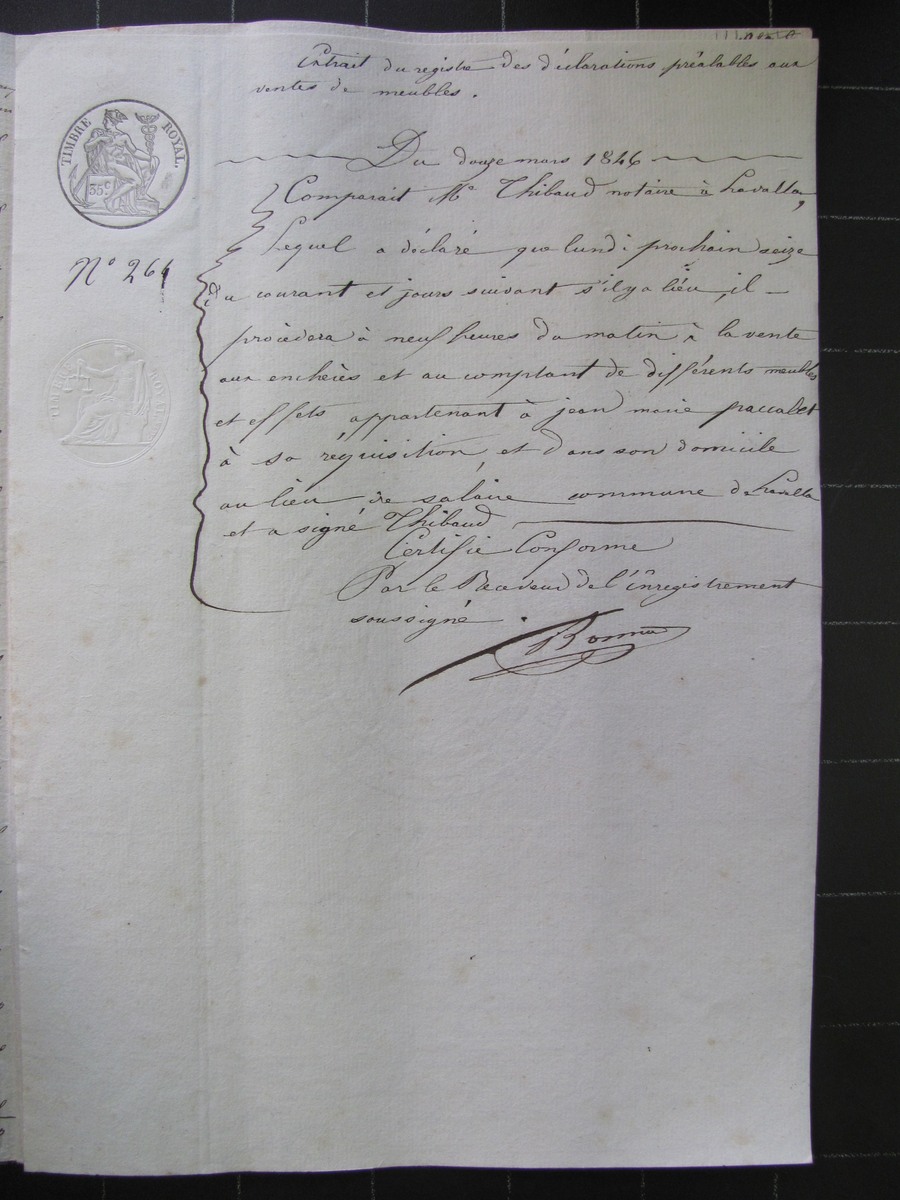 Extrait du registre des déclarations préalables aux
ventes de meubles.
Du douze mars 1846
Comparait Me Thibaud notaire à Lavalla,
Lequel a déclaré que lundi prochain seize
du courant et jours suivant s'il y a lieu, il
procèdera à neuf heures du matin à la vente
aux enchères et au comptant de différents meubles
et effets appartenant à jean marie
à sa réquisition, et dans son domicile
au lieu de salaire commune de Lavalla
et a signé Thibaud
Certifié Conforme
Par le Receveur de l'enregistrement
soussigné.
TIMBRE ROYAL.
35 c
N° 264
TIMBRE ROYAL